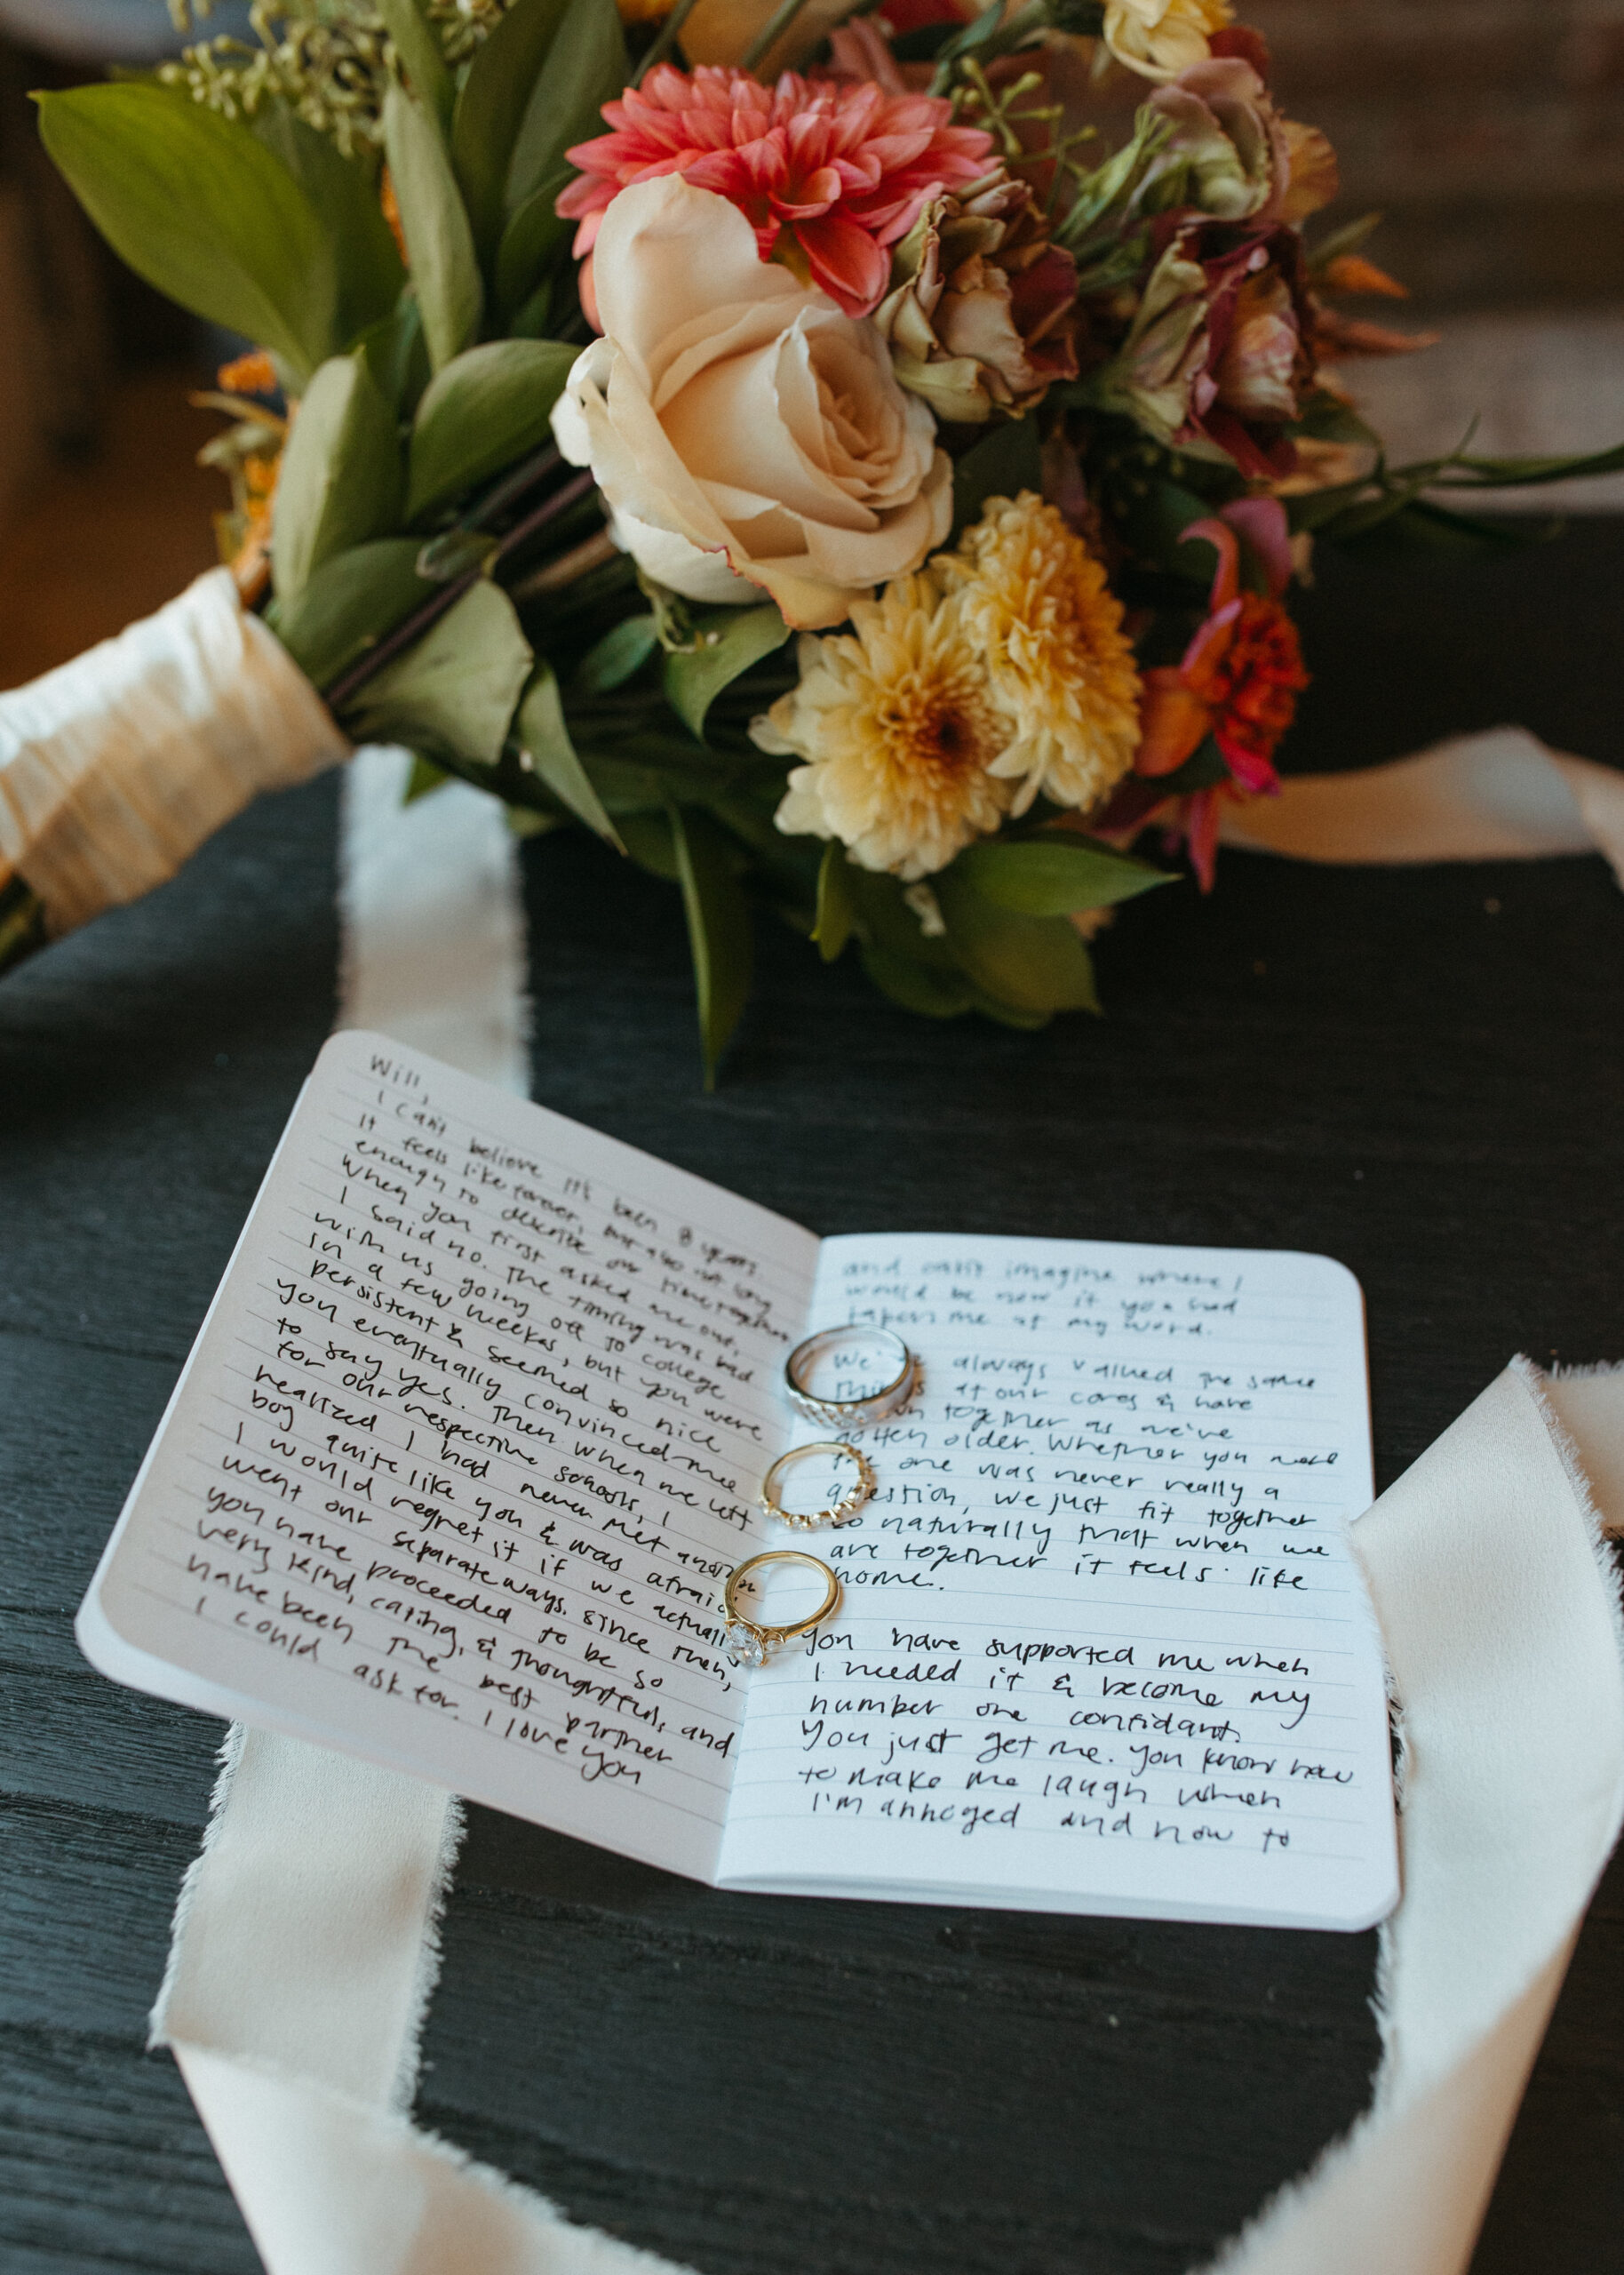 Will,
I can't believe it's been 8 years.
It feels like forever, but also not long
enough to describe our time together.
When you first asked me out,
I said no. The timing was bad
with us going off to college
in a few weekas, but you were
persistent & seemed so nice
you eventually convinced me
to say yes. Then when we left
for our respective schools, I
realized I had never met another
boy quite like you & was afraid
I would regret it if we actually
went our separate ways. Since then,
you have proceeded to be so
very kind, caring, & thoughtful, and
have been the best partner
I could ask for. I love you
and can't imagine where I
would be now if you had
taken me at my word.
We've always valued the same
things at our cores & have
together as we've
gotten older. Whether you were
the one was never really a
question, we just fit together
so naturally that when we
are together it feels like
home.
You have supported me when
I needed it & become my
number one confidant.
You just get me. You know how
to make me laugh when
I'm annoyed and how to